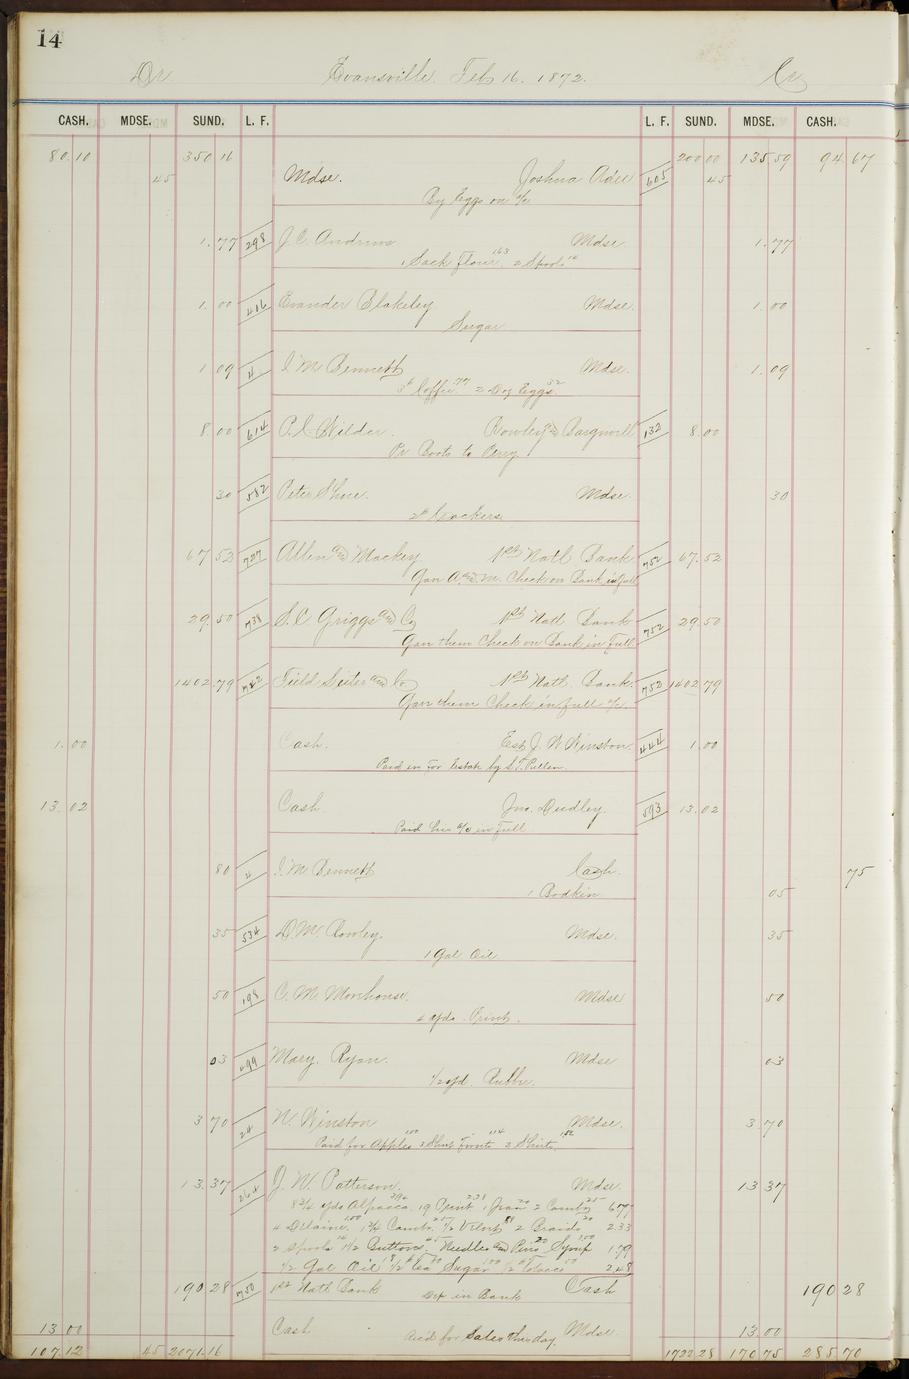 14
Dr Evansville Feb 16. 1872. Cr
CASH. MDSE. SUND. L. F. L. F. SUND. MDSE. CASH.
80.10 350 16 200 00 135 59 94 67
45 Mdse. Joshua 605 45
By Eggs on a/c
1.77 298 J. C. Andrews Mdse 1.77
1 Sack Flour 163 2 Spools 14
1.00 416 Evander Blakeley Mdse. 1.00
Sugar
1 09 4 I. M. Bennett Mdse. 1.09
3# Coffee 77 2 Doz Eggs 32
8.00 614 P. C. Wilder. Rowley and 132 8.00
Pr Boots to Percy
30 582 Peter Shree. Mdse. 30
2# Crackers
67 52 727 Allen and Mackey 1st Natl Bank 752 67.52
Gav A. and M. Check on Bank in full
29.50 738 S. C. Griggs and Co 1st Natl Bank 752 29.50
Gav them Check on Bank in full
1402.79 742 Field Leiter and Co 1st Natl. Bank. 752 1402.79
Gav them Check in full a/c
1.00 Cash. Est J. W. Winston. 444 1.00
Paid in for Estate by S. T. Pullen
13.02 Cash Jno. Dudley. 593 13.02
Paid his a/c in full
80 4 I. M. Bennett Cash. 75
1 Bodkin 05
35 534 D. M. Rowley. Mdse. 35
1 Gal Oil
50 198 C. M. Morehouse. Mdse 50
4 yds. Print.
03 499 Mary. Ryan. Mdse 03
1/2 yd. Rubber.
3 70 24 W. Winston Mdse. 3.70
Paid for Apples 100 3 Shirt Fronts 114 2 Shirts
13.37 264 J. W. Patterson. Mdse 13 37
8 3/4 yds Alpacca 19 Print 1 20 2 Cambc 25 6 77
4 Delaine 100 1 3/4 Cambc. 1/2 Velvt 2 Braids 20 2 33
2 Spools 14 1 1/2 Buttons 45 Needles and Pins 20 Syrup 100 1 79
1/2 Gal Oil 1/2 # Tea Sugar 100 1/2 Tobacco 50 2.48
190 28 750 1st Natl Bank Dep in Bank Cash 190 28
13 00 Cash Recd for Sales Thursday. Mdse 13.00
107.12 45 2071.16 1722 28 170 75 285.70